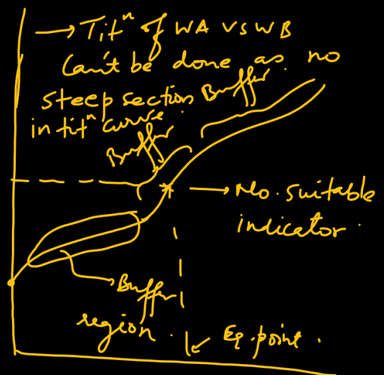 → Titⁿ of WA vs WB
Can't be done as no
steep section
in titⁿ curve.
Buffer
Buffer
→ No. suitable
indicator.
→ Buffer
region.
Eq. point.